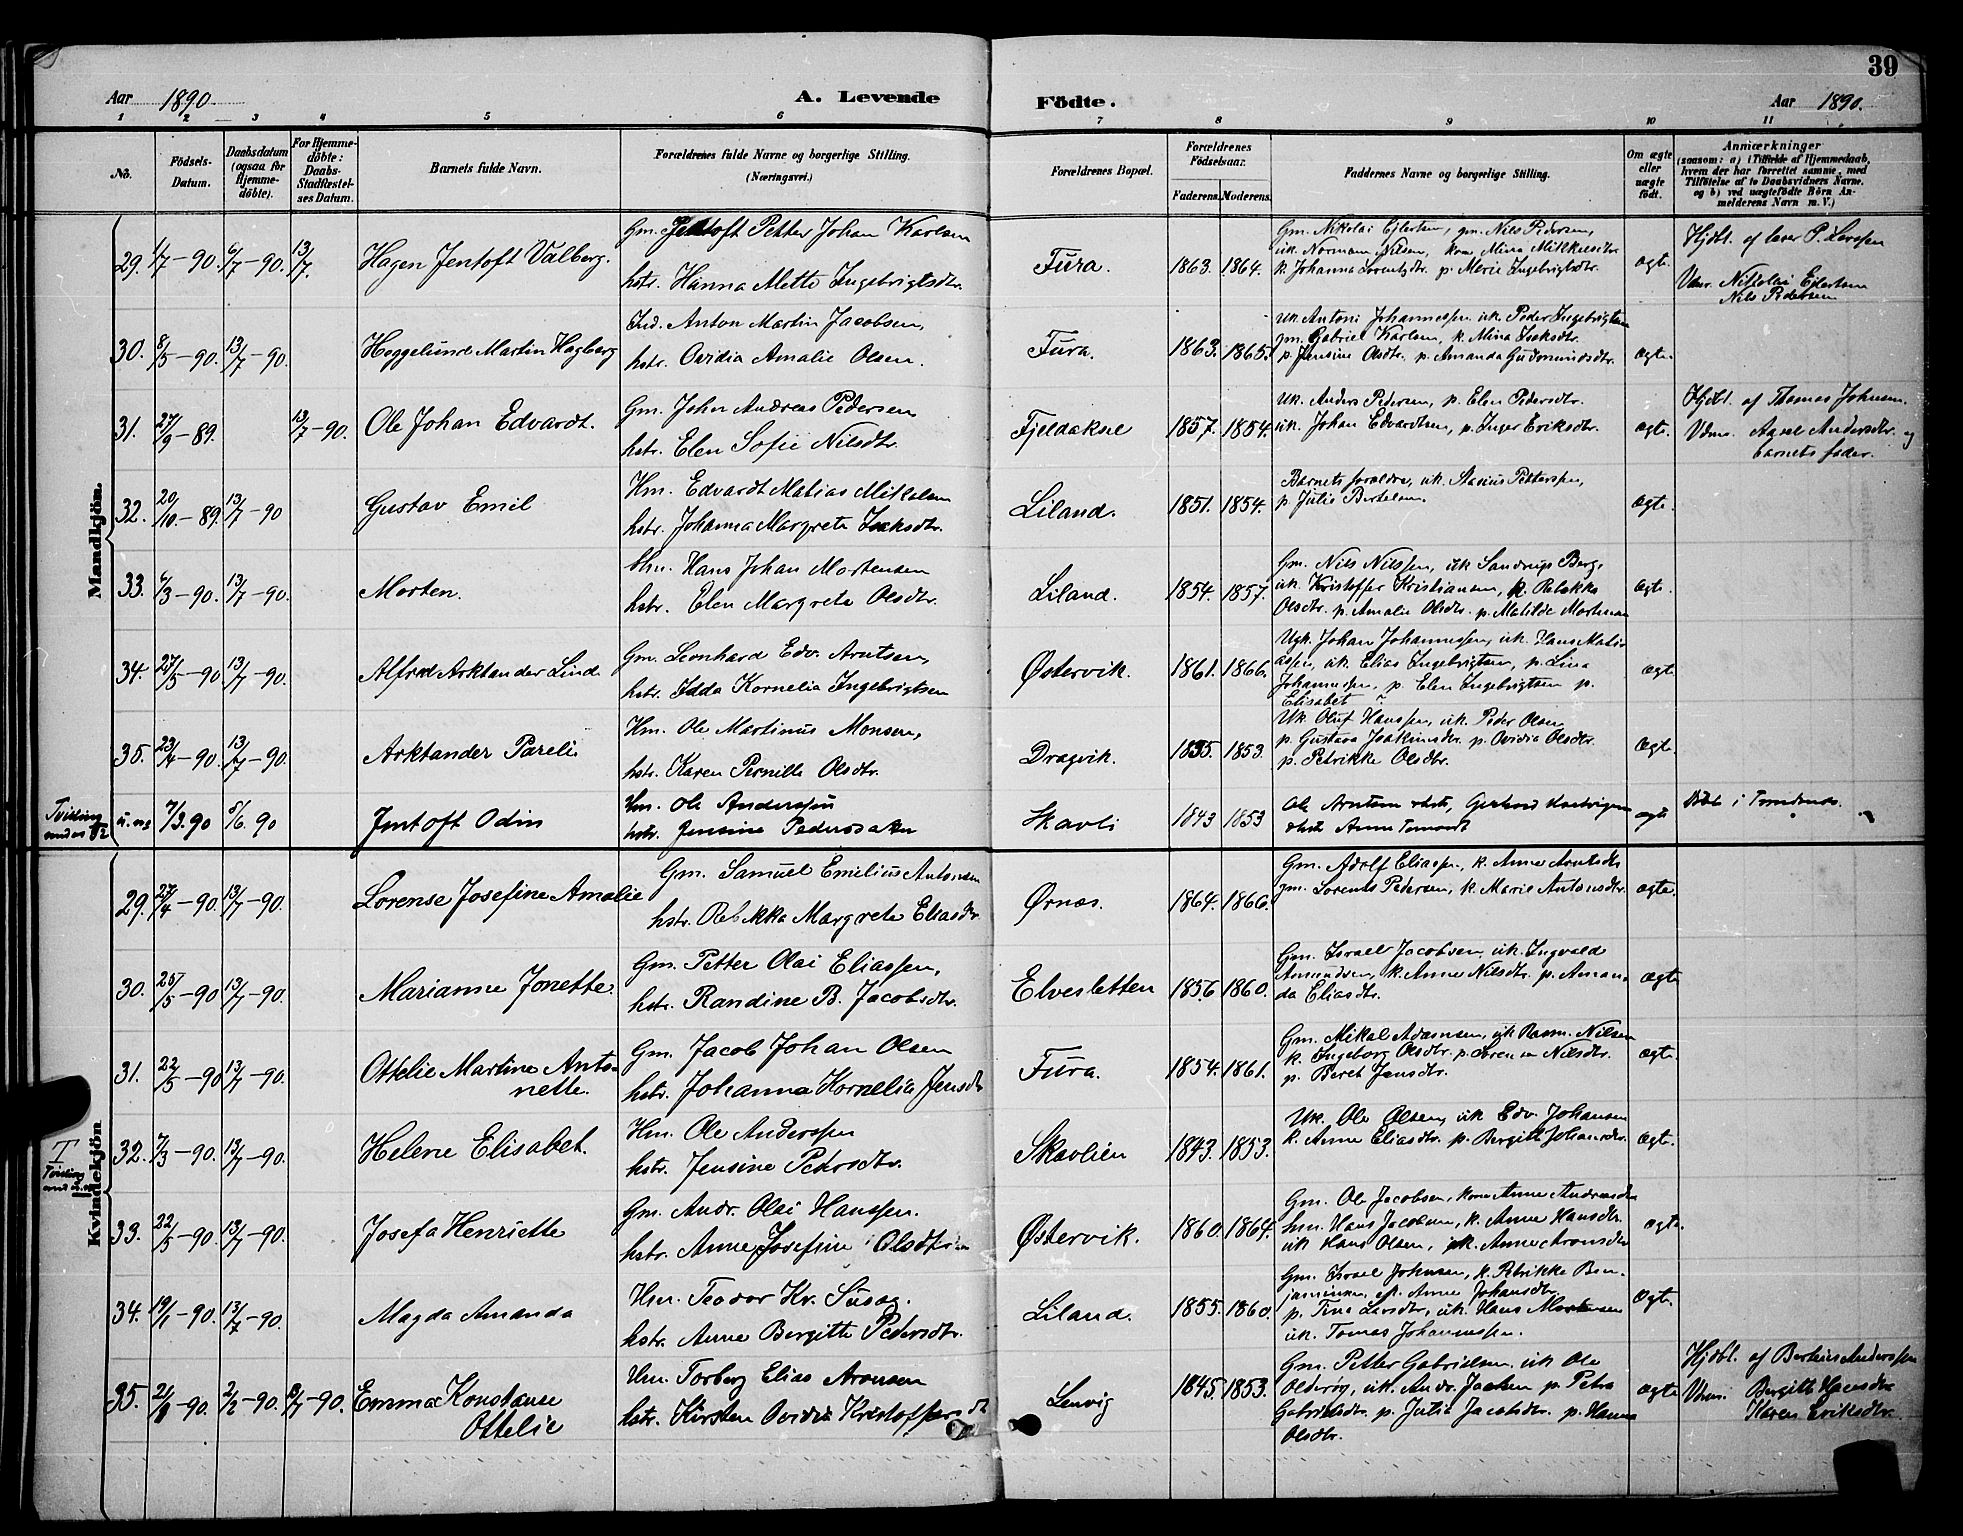 39
Aar 1890. A. Levende Födte. Aar 1890.
1 2 3 4 5 6 7 8 9 10 11
No. Födsels-Datum. Daabsdatum (ogsaa for Hjemme-döbte). For Hjemme-döbte: Daabs-Stadfæstel-ses Datum. Barnets fulde Navn. Forældrenes fulde Navne og borgerlige Stilling. (Næringsvei.) Forældrenes Bopæl. Forældrenes Födselsaar. Faderens. Moderens. Faddernes Navne og borgerlige Stilling. Om ægte eller uægte födt. Anmærkninger (saasom: a) i Tilfælde af Hjemmedaab, hvem der har forrettet samme, med Tilföielse af to Daabsvidners Navne, og b) ved uægtefödte Börn An-melderens Navn m. V.)
Mandkjön.
29. 1/7-90. 6/7-90. 13/7. Hagen Jentoft Valberg.
Gm. Jentoft Petter Johan Karlsen
hstr. Hanna Mette Ingebrigtsdtr.
Fura. 1863. 1864.
Gm. Nikolai Ejlertsen, gm. Nils Pedersen,
uk. Norman Nilsen, kone Mina
k. Johanna Lorentsdtr. p. Merie Ingebrigtsdtr.
ægte.
Hjdbt. af lærer P. Larssen
Vidner. Nikolai Ejlertsen
Nils Pedersen
30. 8/5-90. 13/7-90. Heggelund Martin Hagberg
Ind. Anton Martin Jacobsen,
hstr. Ovidia Amalie Olsen.
Fura. 1863. 1865.
Uk. Antoni Johannessen uk. Peder Ingebrigtsen
gm. Gabriel Karlsen, k. Mina Isaksdtr.
p. Jensine Olsdtr. p. Amanda Gudmundsdtr.
ægte.
31. 27/9-89. 13/7-90. Ole Johan Edvardt.
Gm. John Andreas Pedersen
hstr. Elen Sofie Nilsdtr.
Fjeldaksel 1857. 1854.
Uk. Anders Pedersen, p. Elen Pedersdtr.
uk. Johan Edvardtsen, p. Inger Eriksdtr.
ægte.
Hjdbt. af Thomas Johnsen.
Vidner. Aasel Andersdtr. og
barnets fader.
32. 20/10-89. 13/7-90 Gustav Emil
Hm. Edvardt Matias Mikkelsen
hstr. Johanna Margrete Isaksdtr.
Liland. 1851. 1854.
Barnets forældre, uk. Marius Pettersen,
p. Julie Bertelsen.
ægte.
33. 6/3-90. 13/7-90. Morten.
Hm. Hans Johan Mortensen
hstr. Elen Margrete Olsdtr.
Liland. 1854. 1857.
Gm. Nils Nilssen, uk Sandrup Berg,
uk. Kristoffer Kristiansen, k. Rebekka
Olsdtr. p. Amalie Olsdtr. p. Matilde Mortensen
ægte.
34. 27/5-90 13/7-90. Alfred Arktander Lind
Gm. Leonhard Edv. Arntsen,
hstr. Idda Kornelia Ingebrigtsen
Østervik. 1861. 1866.
Ugk. Johan Johannessen, uk. Hans Mati-
assen, uk. Elias Ingebrigtsen, p. Lina
Johannessen, p. Elen Ingebrigtsen p.
Elisabet ?
ægte
35. 23/4-90. 13/7-90. Arktander Pareli
Hm. Ole Martinus Monsen,
hstr. Karen Pernille Olsdtr.
Dragvik. 1855. 1853
Uk Oluf Hanssen, uk. Peder Olsen
p. Gustava Joakimsdtr. p. Ovidia Olsdtr.
p. Petrikke Olsdtr.
ægte.
Tvilling
med no 32
u. no 7/3.90 8/6.90 Jentoft Odin
Hm. Ole Anderssen
hstr. Jensine Pedersdatter
Skavli 1843 1853
Ole Arntsen, Gerhard
Anne
ægte
Döbt i Trondenæs.
Kvindekjön
29. 27/4-90. 13/7-90. Lorense Josefine Amalie
Gm. Samuel Emilius Antonsen
hstr. Rebekka Margrete Eliasdtr
Ørnes. 1864. 1866.
Gm. Adolf Eliassen, k. Anne Arntsdtr
gm. Lorents Pedersen, k. Marie Antonsdtr.
ægte.
30. 25/5-90 13/7-90. Marianne Jonette.
Gm. Petter Olai Eliassen,
hstr. Randine B. Jacobsdtr.
Elvesletten 1856 1860.
Gm. Israel Jacobsen, uk. Ingvald
Amundsen, k. Anne Nilsdtr. p. Aman-
da Eliasdtr.
ægte
31. 22/5-90 13/7-90. Ottelie Martine Anto-
nette.
Gm. Jacob Johan Olsen
hstr. Johanna Kornelia Jensdtr
Fura. 1854. 1861.
Gm. Mikal Adamsen, uk Rasm. Nilsen
k. Ingeborg Olsdtr. p. Nilsdtr.
p. Beret Jensdtr.
ægte.
T
Tvilling
med u. no
32. 7/3-90. 13/7-90. Helene Elisabet.
Hm. Ole Anderssen
hstr. Jensine Pedersdtr.
Skavlien 1843. 1853.
Uk. Ole Olsen, uk Edv. Johansen
k. Anne Eliasdtr. p. Bergitte Johansdtr.
ægte.
33. 22/5-90. 13/7-90. Josefa Henriette
Gm. Andr. Olai Hanssen.
hstr. Anne Josefine Olsdtr
Østervik. 1860. 1864.
Gm. Ole Jacobsen, kone Anne Andreasdtr
hm. Hans Jacobsen, k. Anne Hansdtr.
uk Hans Olsen, k. Anne Aronsdtr
ægte.
34. 19/1-90. 13/7-90. Magda Amanda
Hm. Teodor Kr. Susæg.
hstr. Anne Bergitte Pedersdtr.
Liland. 1855. 1860.
Gm. Israel Johnsen, k. Petrikke Ben-
jaminsen, p. Anne Johansdtr.
p. Tina Larsdtr, uk. Hans Mortensen
uk. Tomas Johannessen.
ægte.
35. 21/1-90. 2/2-90. 13/7-90. Emma Konstanse
Ottelie
Hm. Torberg Elias Aronsen
hstr. Kirsten Ovidia Kristoffersdt
Lenvig 1845. 1853.
Gm. Petter Gabrielsen. uk Ole
Olderøy, uk. Andr. p. Petra
Gabrielsdtr. p. Julie Jacobsdtr. p. Hanna
Olsdtr.
ægte
Hjdbt. af Berteus Anderssen
Vidner. Bergitte Hansdtr
Karen Eriksdtr.